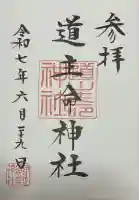 参拝
道主命神社
令和七年六月二十九日